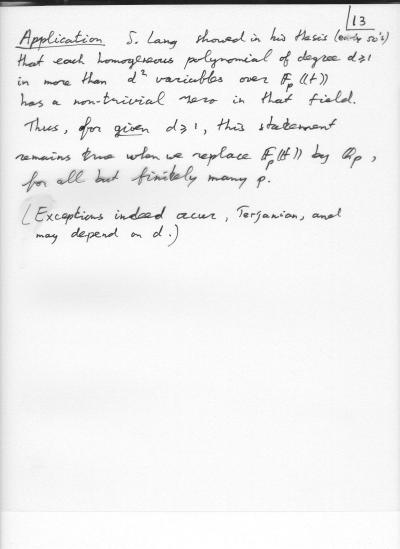 13
Application S. Lang showed in his thesis (early 50's)
that each homogeneous polynomial of degree d≥1
in more than d² variables over 𝔽ₚ((t))
has a non-trivial zero in that field.
Thus, for given d≥1, this statement
remains true when we replace 𝔽ₚ((t)) by ℚₚ,
for all but finitely many p.
(Exceptions indeed occur, Terjanian, and
may depend on d.)